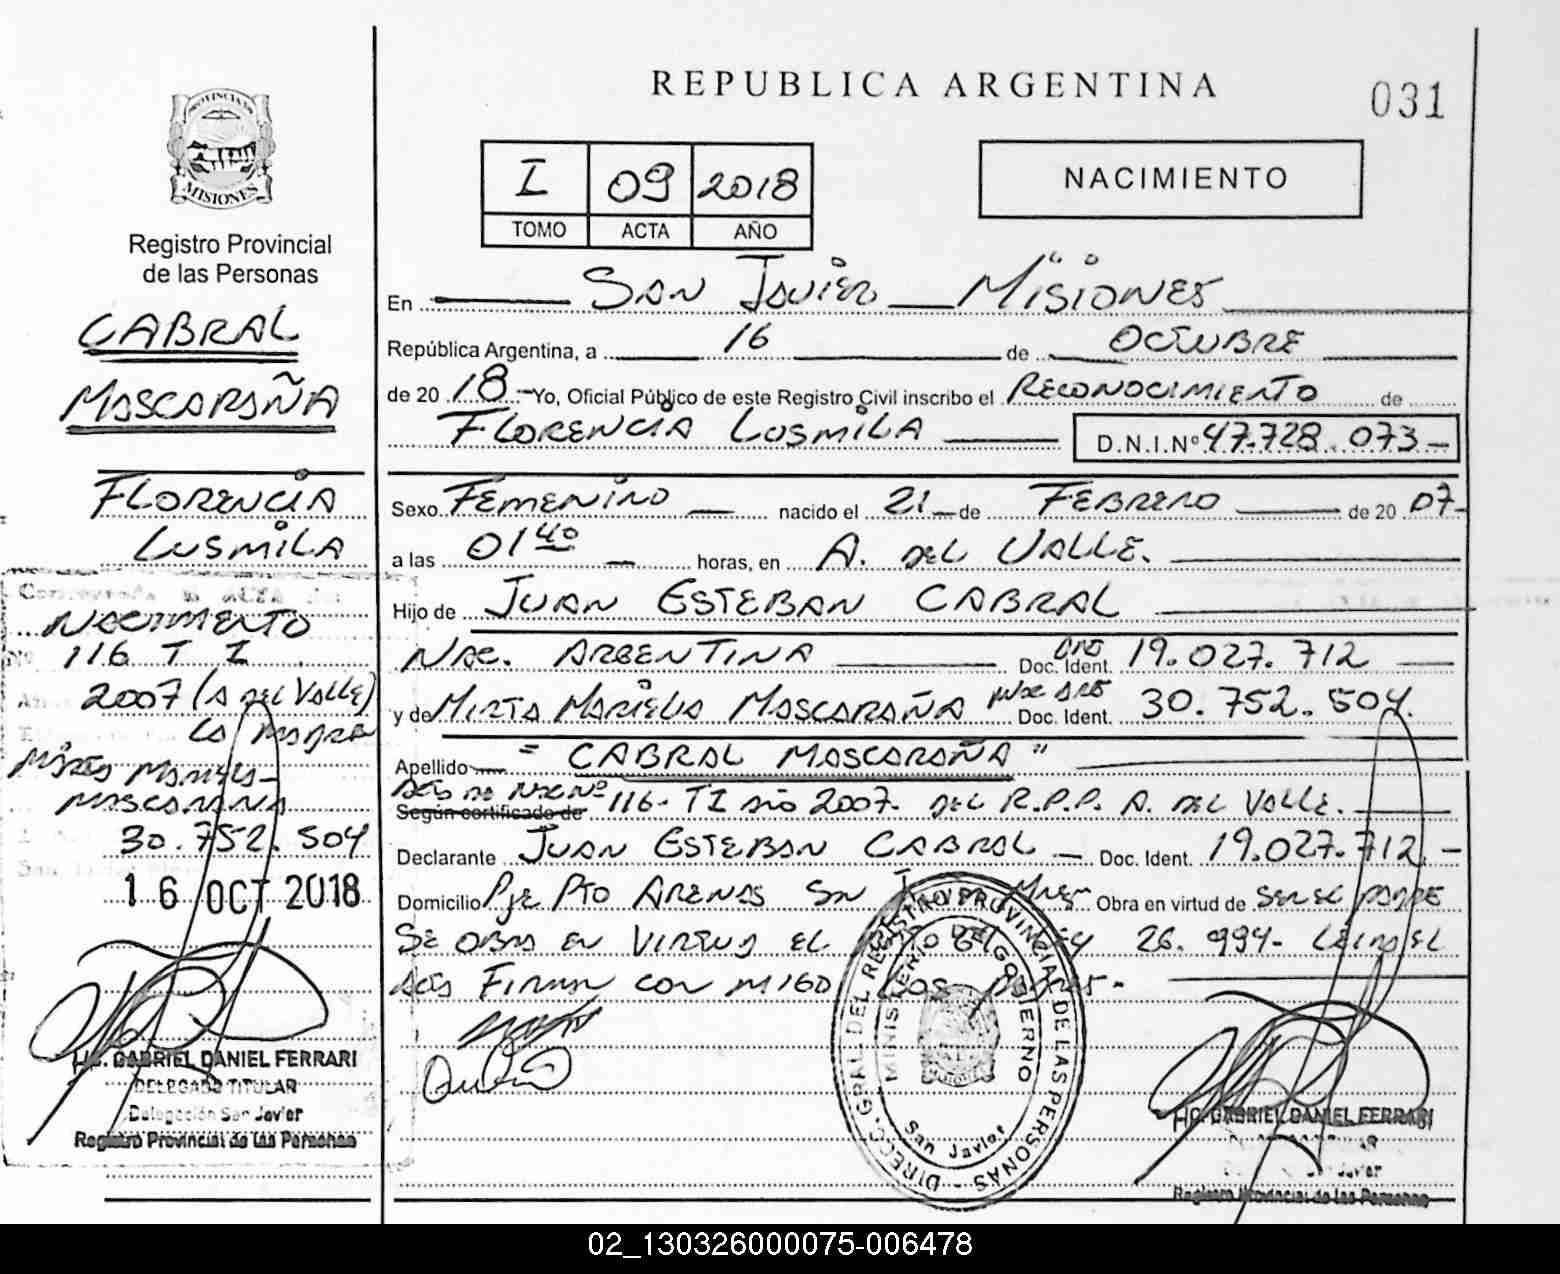 REPUBLICA ARGENTINA
031
PROVINCIA DE
MISIONES
Registro Provincial
de las Personas
CABRAL
MASCARAÑA
FLORENCIA
LUSMILA
NACIMIENTO
116 T I
2007 (A DEL VALLE)
LA MADRE
MIRTA MARIELA
MASCARAÑA
30.752.504
16 OCT 2018
LIC. GABRIEL DANIEL FERRARI
DELEGADO TITULAR
Delegación San Javier
Registro Provincial de las Personas
I 09 2018
TOMO ACTA AÑO
NACIMIENTO
En SAN JAVIER MISIONES
República Argentina, a 16 de OCTUBRE
de 20 18 Yo, Oficial Público de este Registro Civil inscribo el RECONOCIMIENTO de
FLORENCIA LUSMILA D.N.I.Nº 47.728.073
Sexo FEMENINO nacido el 21 de FEBRERO de 20 07
a las 01 40 horas, en A. DEL VALLE.
Hijo de JUAN ESTEBAN CABRAL
NAC. ARGENTINA DNI Doc. Ident. 19.027.712
y de MIRTA MARIELA MASCARAÑA NAC ARG Doc. Ident. 30.752.504
Apellido "CABRAL MASCARAÑA"
Según certificado de 116 - TI AÑO 2007. DEL R.P.P. A. DEL VALLE.
Declarante JUAN ESTEBAN CABRAL Doc. Ident. 19.027.712
Domicilio Pje PTO ARENAS SAN Obra en virtud de SER EL PADRE
SE OBRA EN VIRTUD EL 26.994- LEIDA EL
FIRMAN CON MIGO LOS PADRES.-
DIREC. GRAL. DEL REGISTRO PROVINCIAL DE LAS PERSONAS
MINISTERIO DE GOBIERNO
San Javier
LIC. GABRIEL DANIEL FERRARI
Registro Provincial de las Personas
02_130326000075-006478